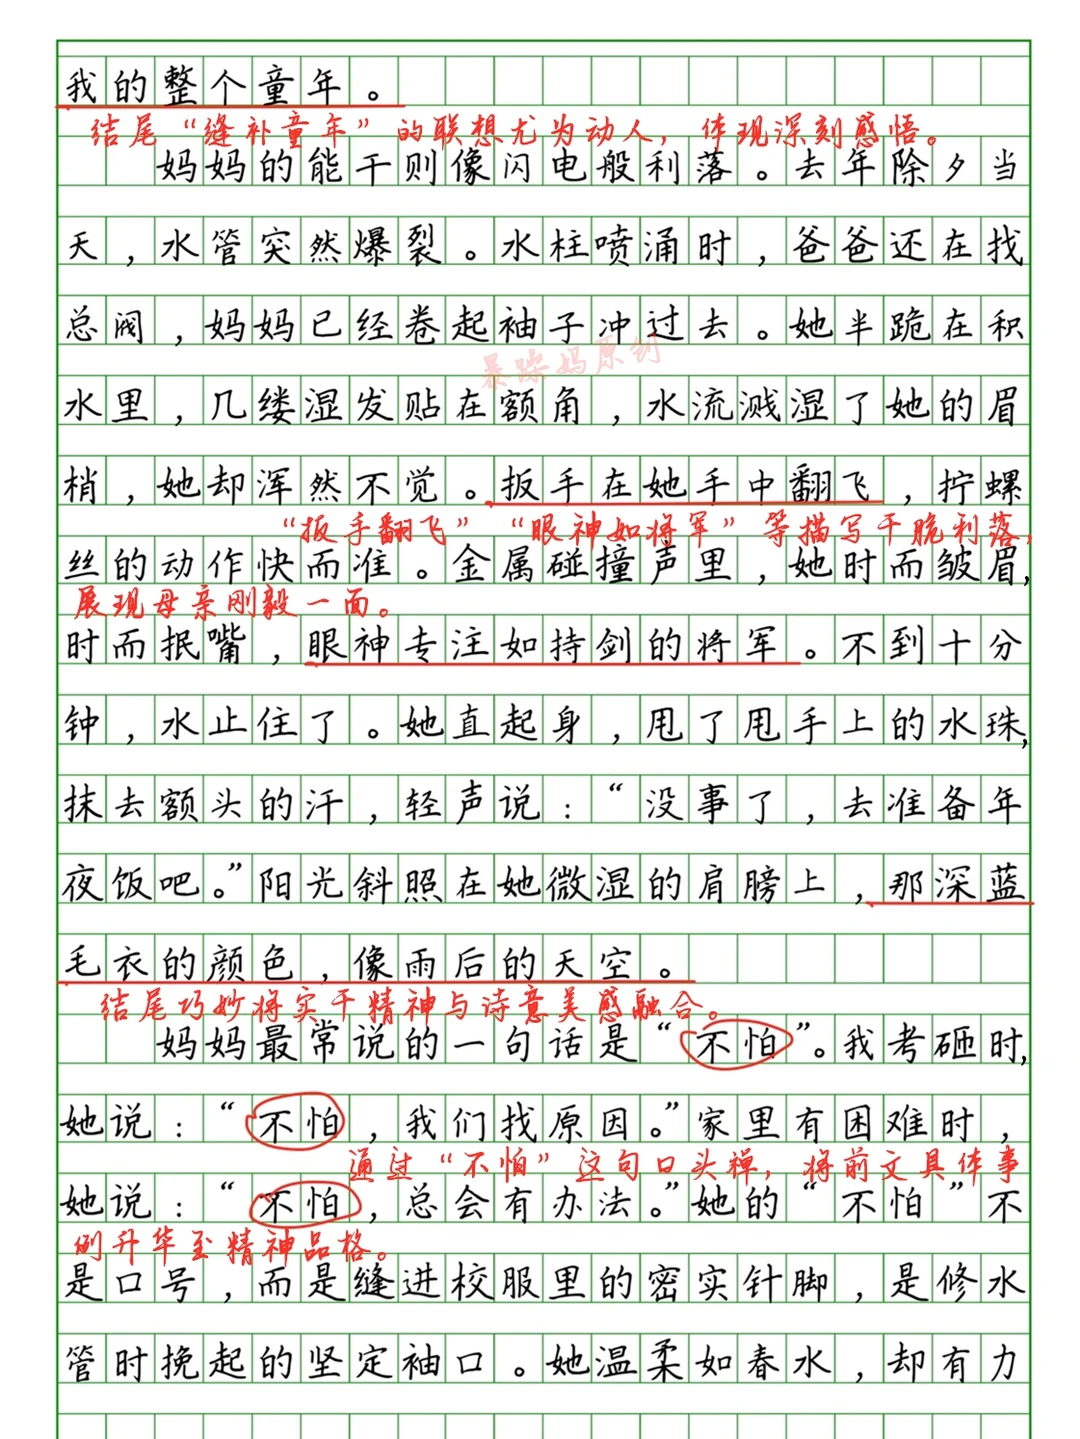 我的整个童年。
结尾“缝补童年”的联想尤为动人，体现深刻感悟。
妈妈的能干则像闪电般利落。去年除夕当
天，水管突然爆裂。水柱喷涌时，爸爸还在找
总阀，妈妈已经卷起袖子冲过去。她半跪在积
暴躁妈原创
水里，几缕湿发贴在额角，水流溅湿了她的眉
梢，她却浑然不觉。扳手在她手中翻飞，拧螺
“扳手翻飞”“眼神如将军”等描写干脆利落，
丝的动作快而准。金属碰撞声里，她时而皱眉，
展现母亲刚毅一面。
时而抿嘴，眼神专注如持剑的将军。不到十分
钟，水止住了。她直起身，甩了甩手上的水珠，
抹去额头的汗，轻声说：“没事了，去准备年
夜饭吧。”阳光斜照在她微湿的肩膀上，那深蓝
毛衣的颜色，像雨后的天空。
结尾巧妙将实干精神与诗意美感融合。
妈妈最常说的一句话是“不怕”。我考砸时，
她说：“不怕，我们找原因。”家里有困难时，
通过“不怕”这句口头禅，将前文具体事
她说：“不怕，总会有办法。”她的“不怕”不
例升华至精神品格。
是口号，而是缝进校服里的密实针脚，是修水
管时挽起的坚定袖口。她温柔如春水，却有力